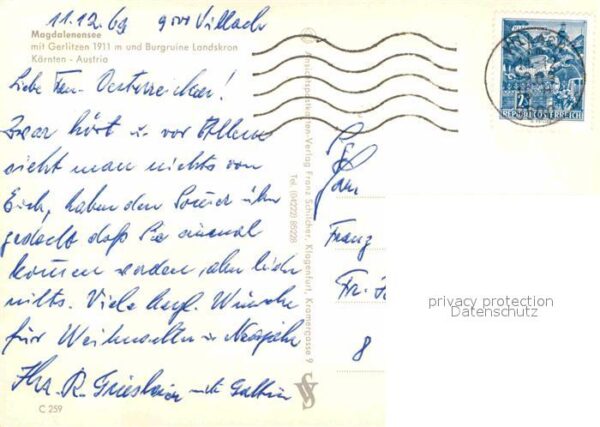 11.12.69 9500 Villach
Magdalenensee
mit Gerlitzen 1911 m und Burgruine Landskron
Kärnten - Austria
Liebe Fam. Oesterreicher!
Zwar hört u. vor Allem
sieht man nichts von
Euch, haben den Sommer über
gedacht daß Sie einmal
kommen werden aber leider
nichts. Viele herzl. Wünsche
für Weihnachten u. Neujahr
Ihr R. mit Gattin
C 259
Ansichtspostkarten-Verlag Franz Schilcher, Klagenfurt, Kramergasse 9
Tel. (04222) 85228
Fam
Franz
Fr.
8
2 S
REPUBLIK ÖSTERREICH
privacy protection
Datenschutz